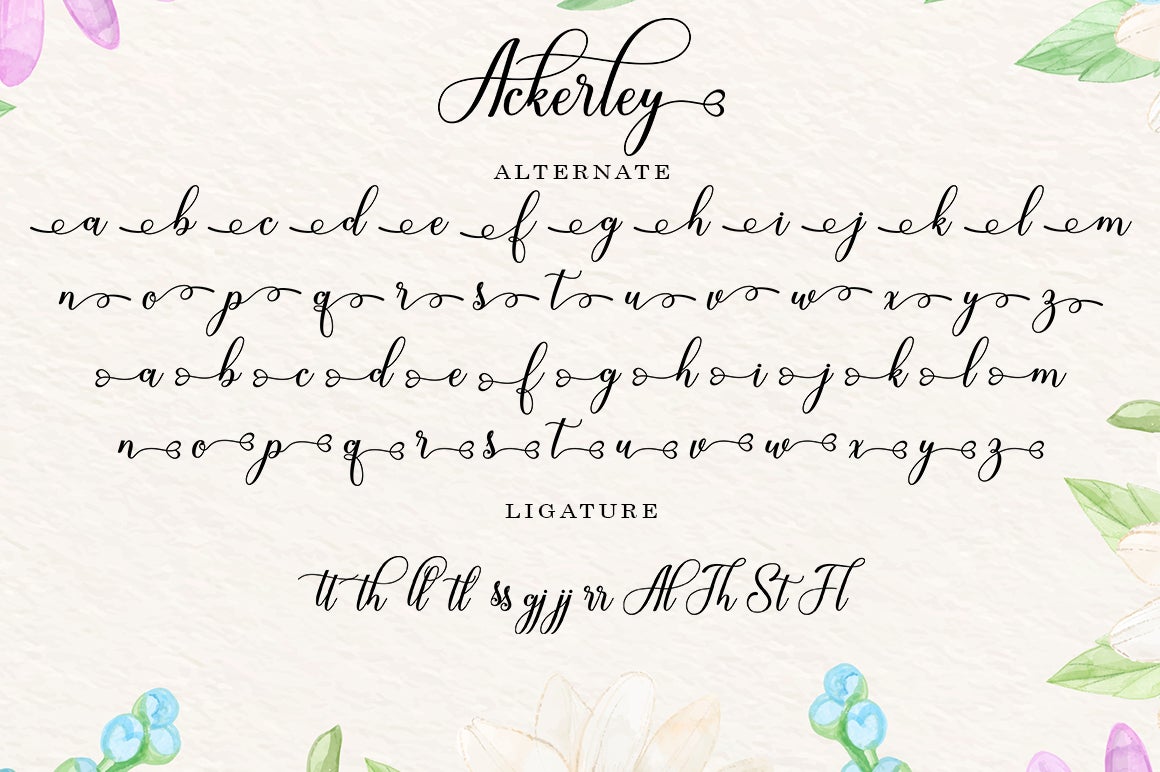 Ackerley
ALTERNATE
a b c d e f g h i j k l m
n o p q r s t u v w x y z
a b c d e f g h i j k l m
n o p q r s t u v w x y z
LIGATURE
tt th ll tl ss gj jj rr Al Th St Fl